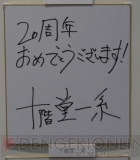 20周年
おめでとうございます!
十階堂一系
DENGEKIONLINE